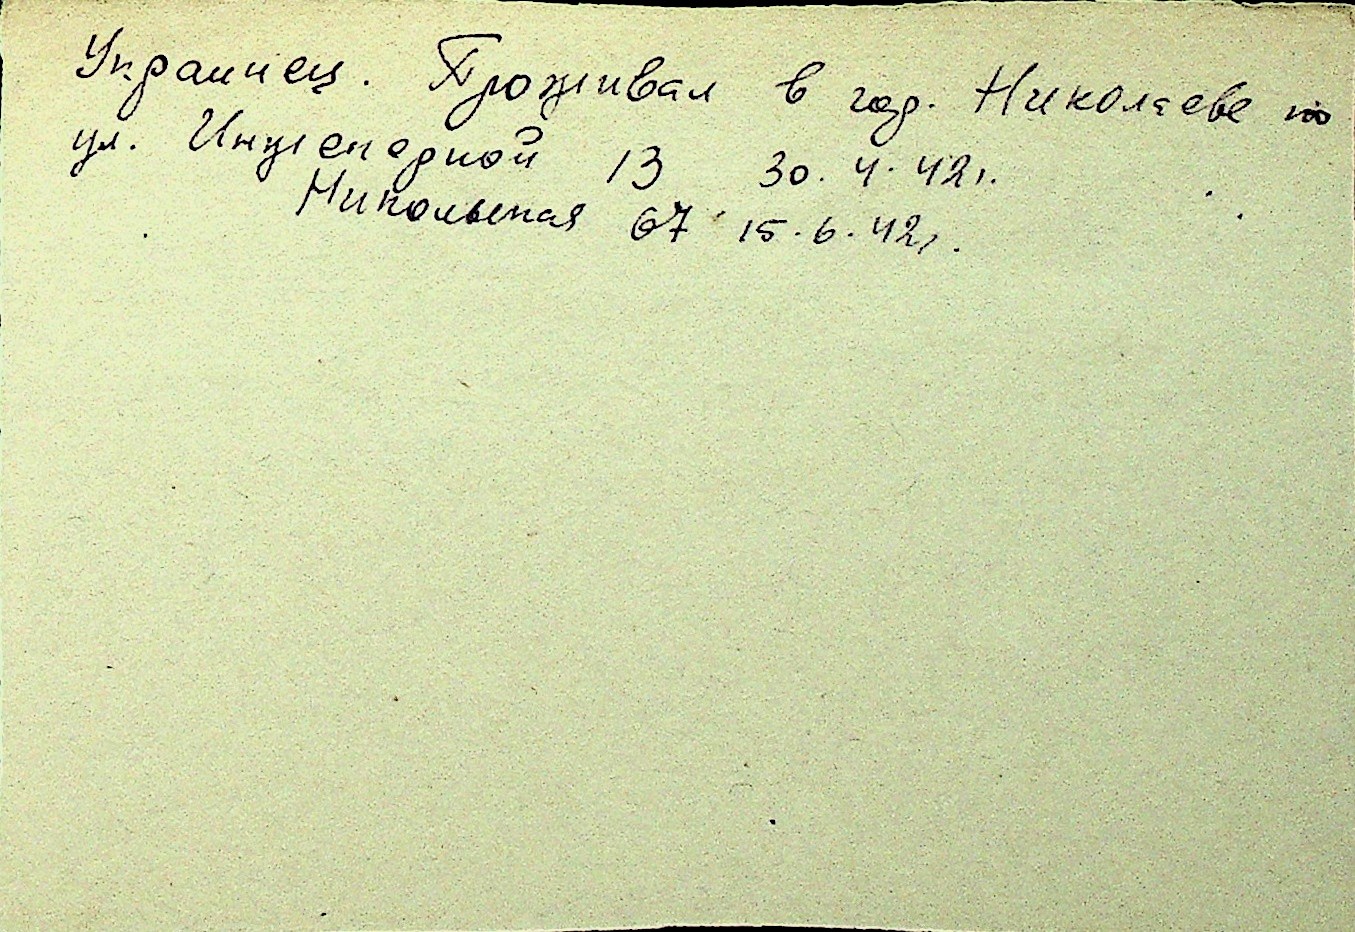 Украинец. Проживал в гор. Николаеве по
ул. Инженерной 13 30.4.42г.
Никольская 67 15.6.42г.